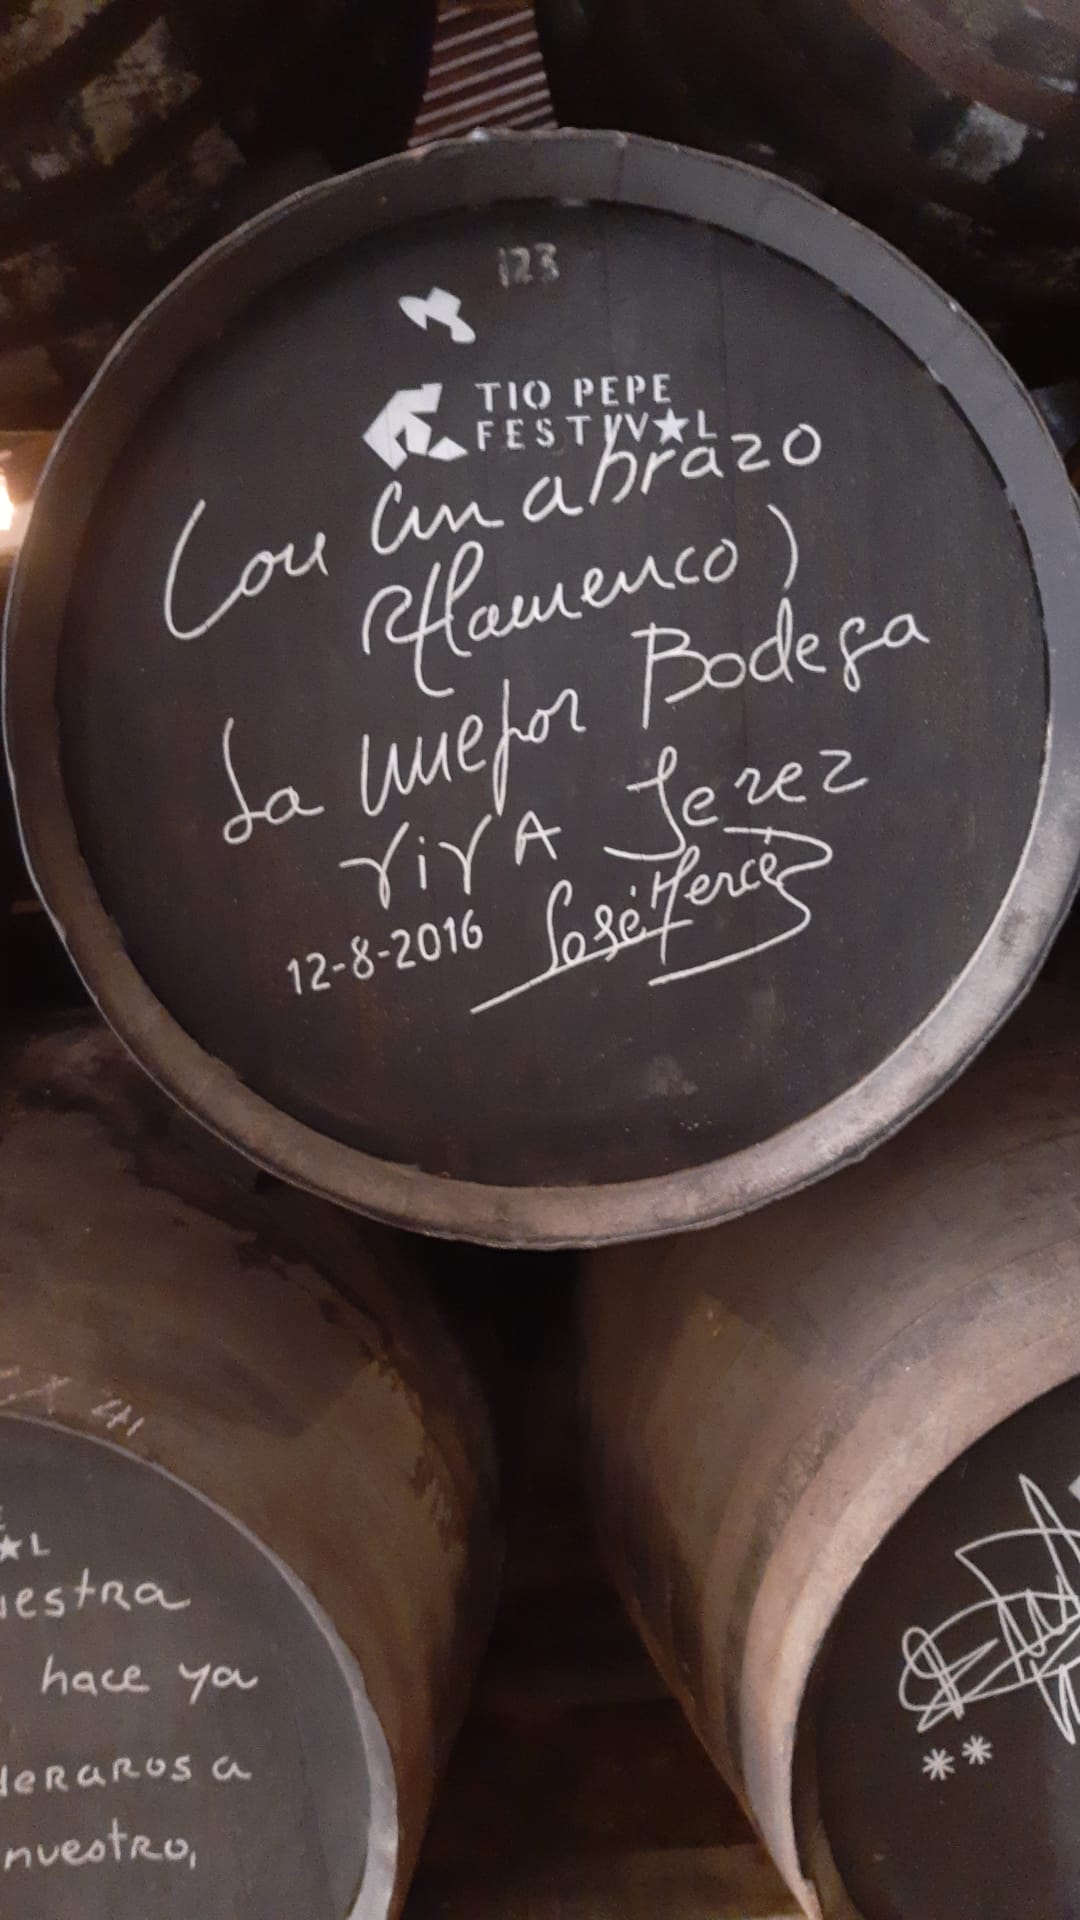 123
TIO PEPE
FESTIV★L
Con un abrazo
flamenco)
La mejor Bodega
VIVA Jerez
12-8-2016 José Mercé
41
★L
uestra
hace ya
deraros a
nuestro,
**